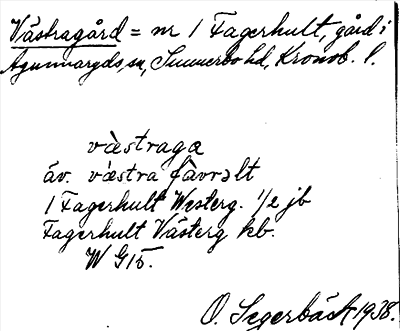 Västragård = nr 1 Fagerhult, gård i
Agunnaryds sn, Sunnerbo hd, Kronob. l.
væ̀straga
äv. væ̀stra fàvrəlt
1 Fagerhult Westerg. 1/2 jb
Fagerhult Västerg kb.
W G15.
O. Segerbäck 1938.